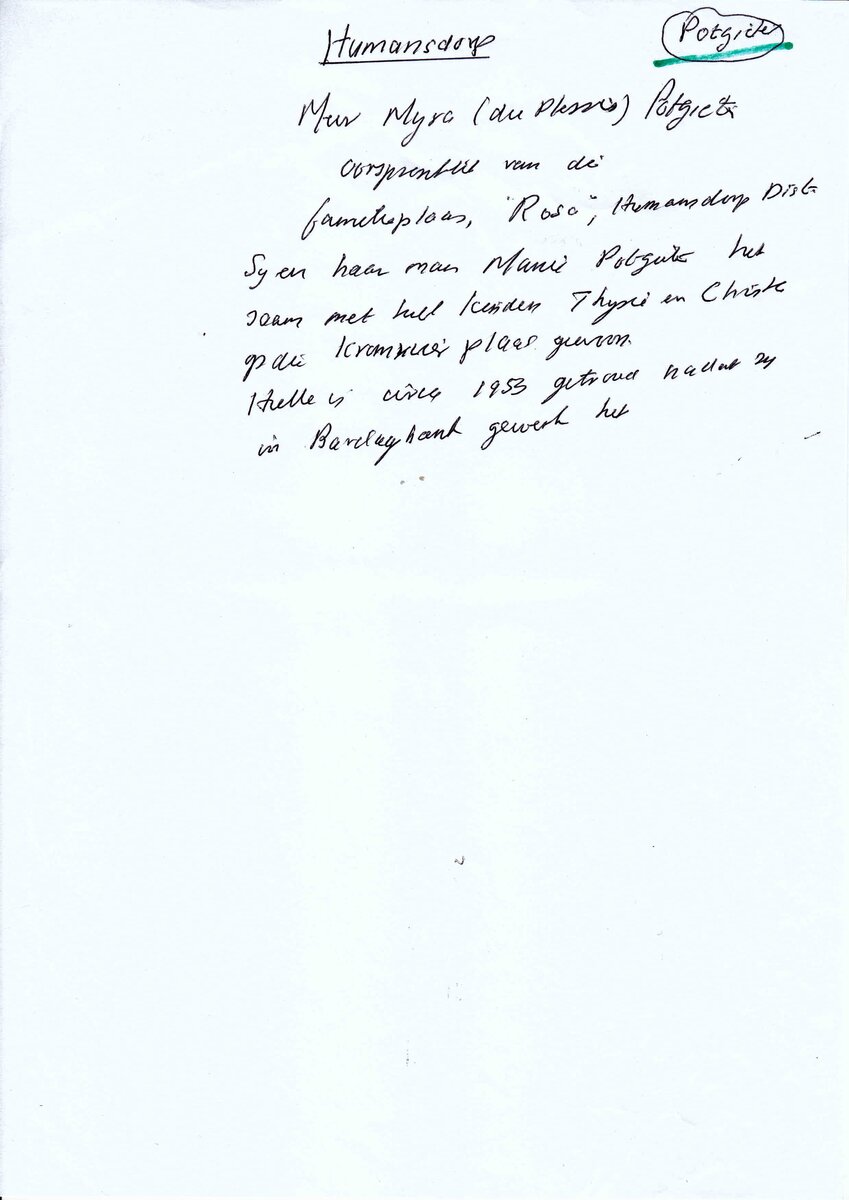 Humansdorp
Potgieter
Mev Myra (du Plessis) Potgieter
oorspronklik van die
familieplaas, "Rosa", Humansdorp Dist
Sy en haar man Manie Potgieter het
saam met hul kinders Thysie en Christe
op die Kromrivier plaas gewoon
Hulle is circa 1953 getroud nadat sy
in Barclaybank gewerk het